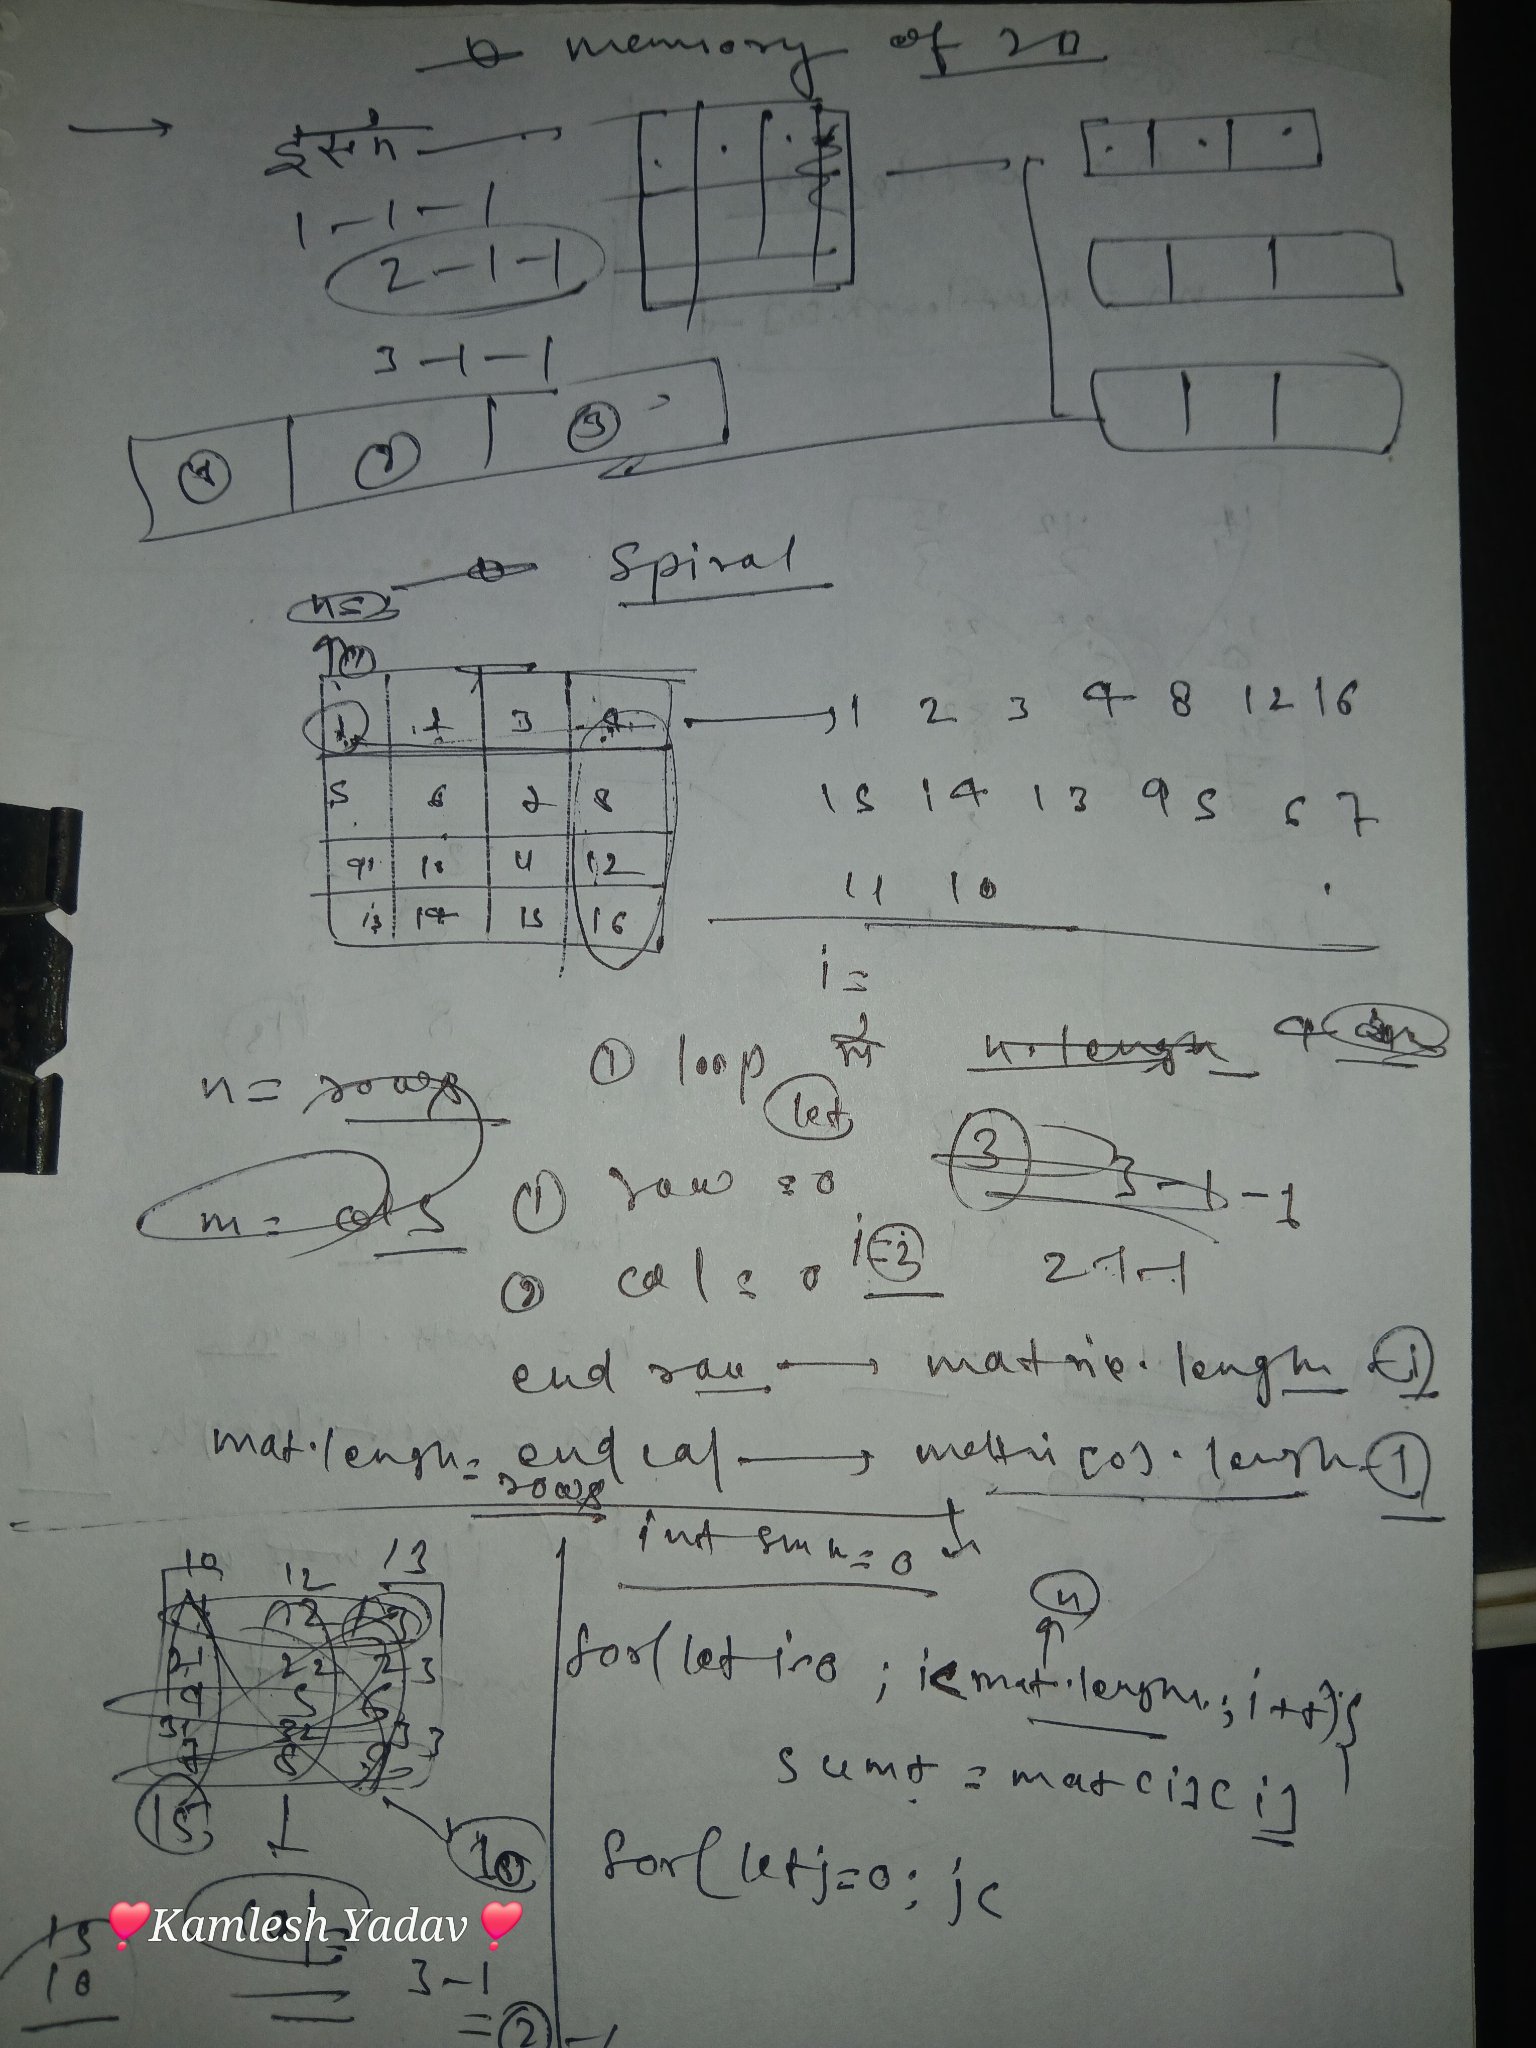 memory of 2D
इसमे
1-1-1
2-1-1
3-1-1
Spiral
1 2 3 4 8 12 16
15 14 13 9 5 6 7
11 10
1 2 3 4
5 6 7 8
9 10 11 12
13 14 15 16
i =
① loop में n.lengh
let
n = rows
m = cols
① row = 0
3 3-1-1
② col = 0
2-1-1
end row → matrix.lengh -1
mat.lengh = end col → lengh -1
rows
int sum = 0
n
for(let i=0; i< mat.lengh; i++){
sum+ = mat[i][i]
for(let j=0; j<
12 13
12
22 23
5 6
32 33
8
15
10
15
10
3-1
= 2 -1
❤️Kamlesh Yadav❤️